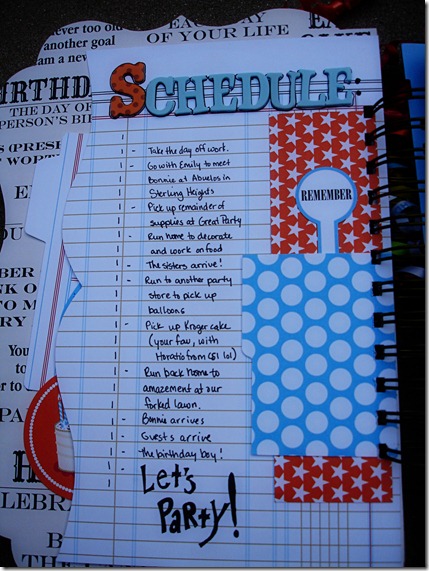 never too old
another goal
am a new
EACH DAY
OF YOUR LIFE
BIRTHD
THE DAY OF
PERSON'S BI
SCHEDULE:
- Take the day off work.
- Go with Emily to meet
Bonnie at Abuelos in
Sterling Heights
- Pick up remainder of
supplies at Great Party
- Run home to decorate
and work on food
- The sisters arrive!
- Run to another party
store to pick up
balloons
- Pick up Kroger cake
(your fav, with
Horatio from CSI lol)
- Run back home to
amazement at our
forked lawn.
- Bonnie arrives
- Guests arrive
- The birthday boy!
Let's
Party!
REMEMBER